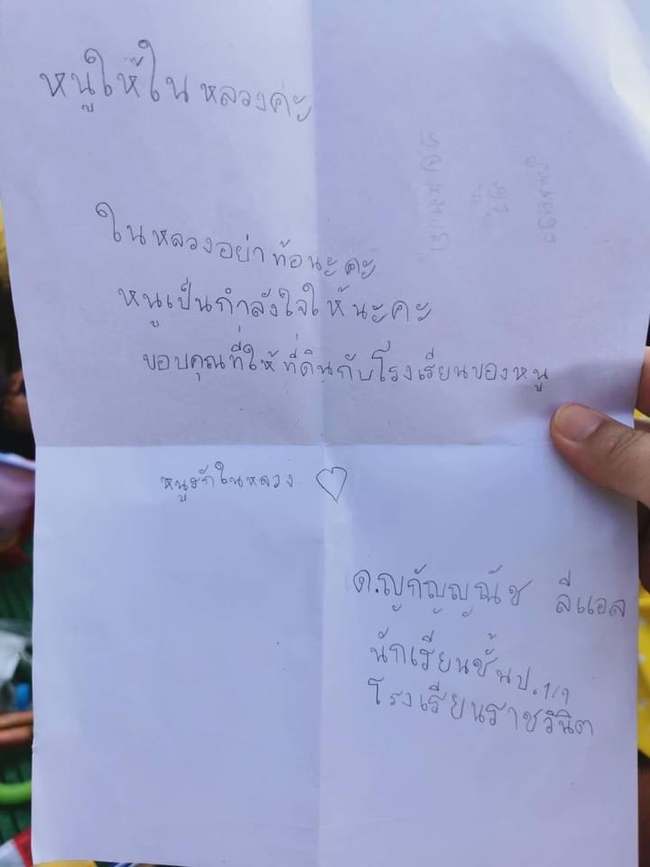 หนูให้ในหลวงค่ะ
ในหลวงอย่าท้อนะคะ
หนูเป็นกำลังใจให้นะคะ
ขอบคุณที่ให้ที่ดินกับโรงเรียนของหนู
หนูรักในหลวง
ด.ญกัญญณัช ลีแอล
นักเรียนชั้นป.1/1
โรงเรียนราชวินิต